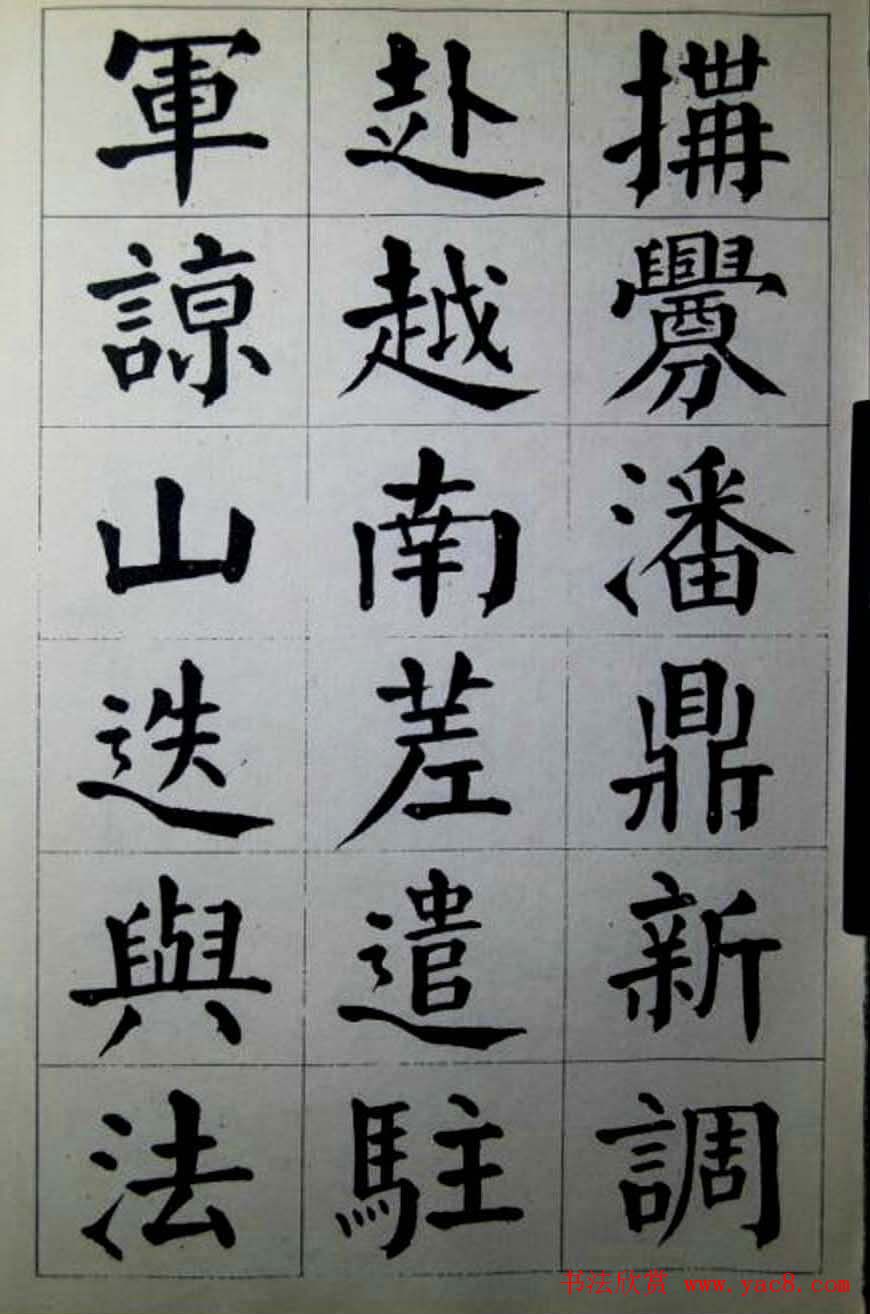 搆釁潘鼎新調
赴越南差遣駐
軍諒山迭與法
书法欣赏 www.yac8.com